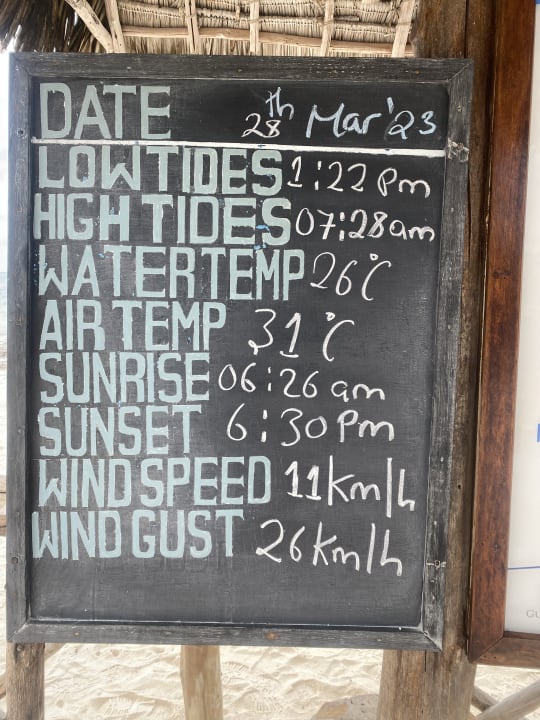 DATE 28th Mar '23
LOW TIDES 1:22 Pm
HIGH TIDES 07:28am
WATER TEMP 26°C
AIR TEMP 31°C
SUNRISE 06:26 am
SUNSET 6:30 Pm
WIND SPEED 11km/h
WIND GUST 26Km/h